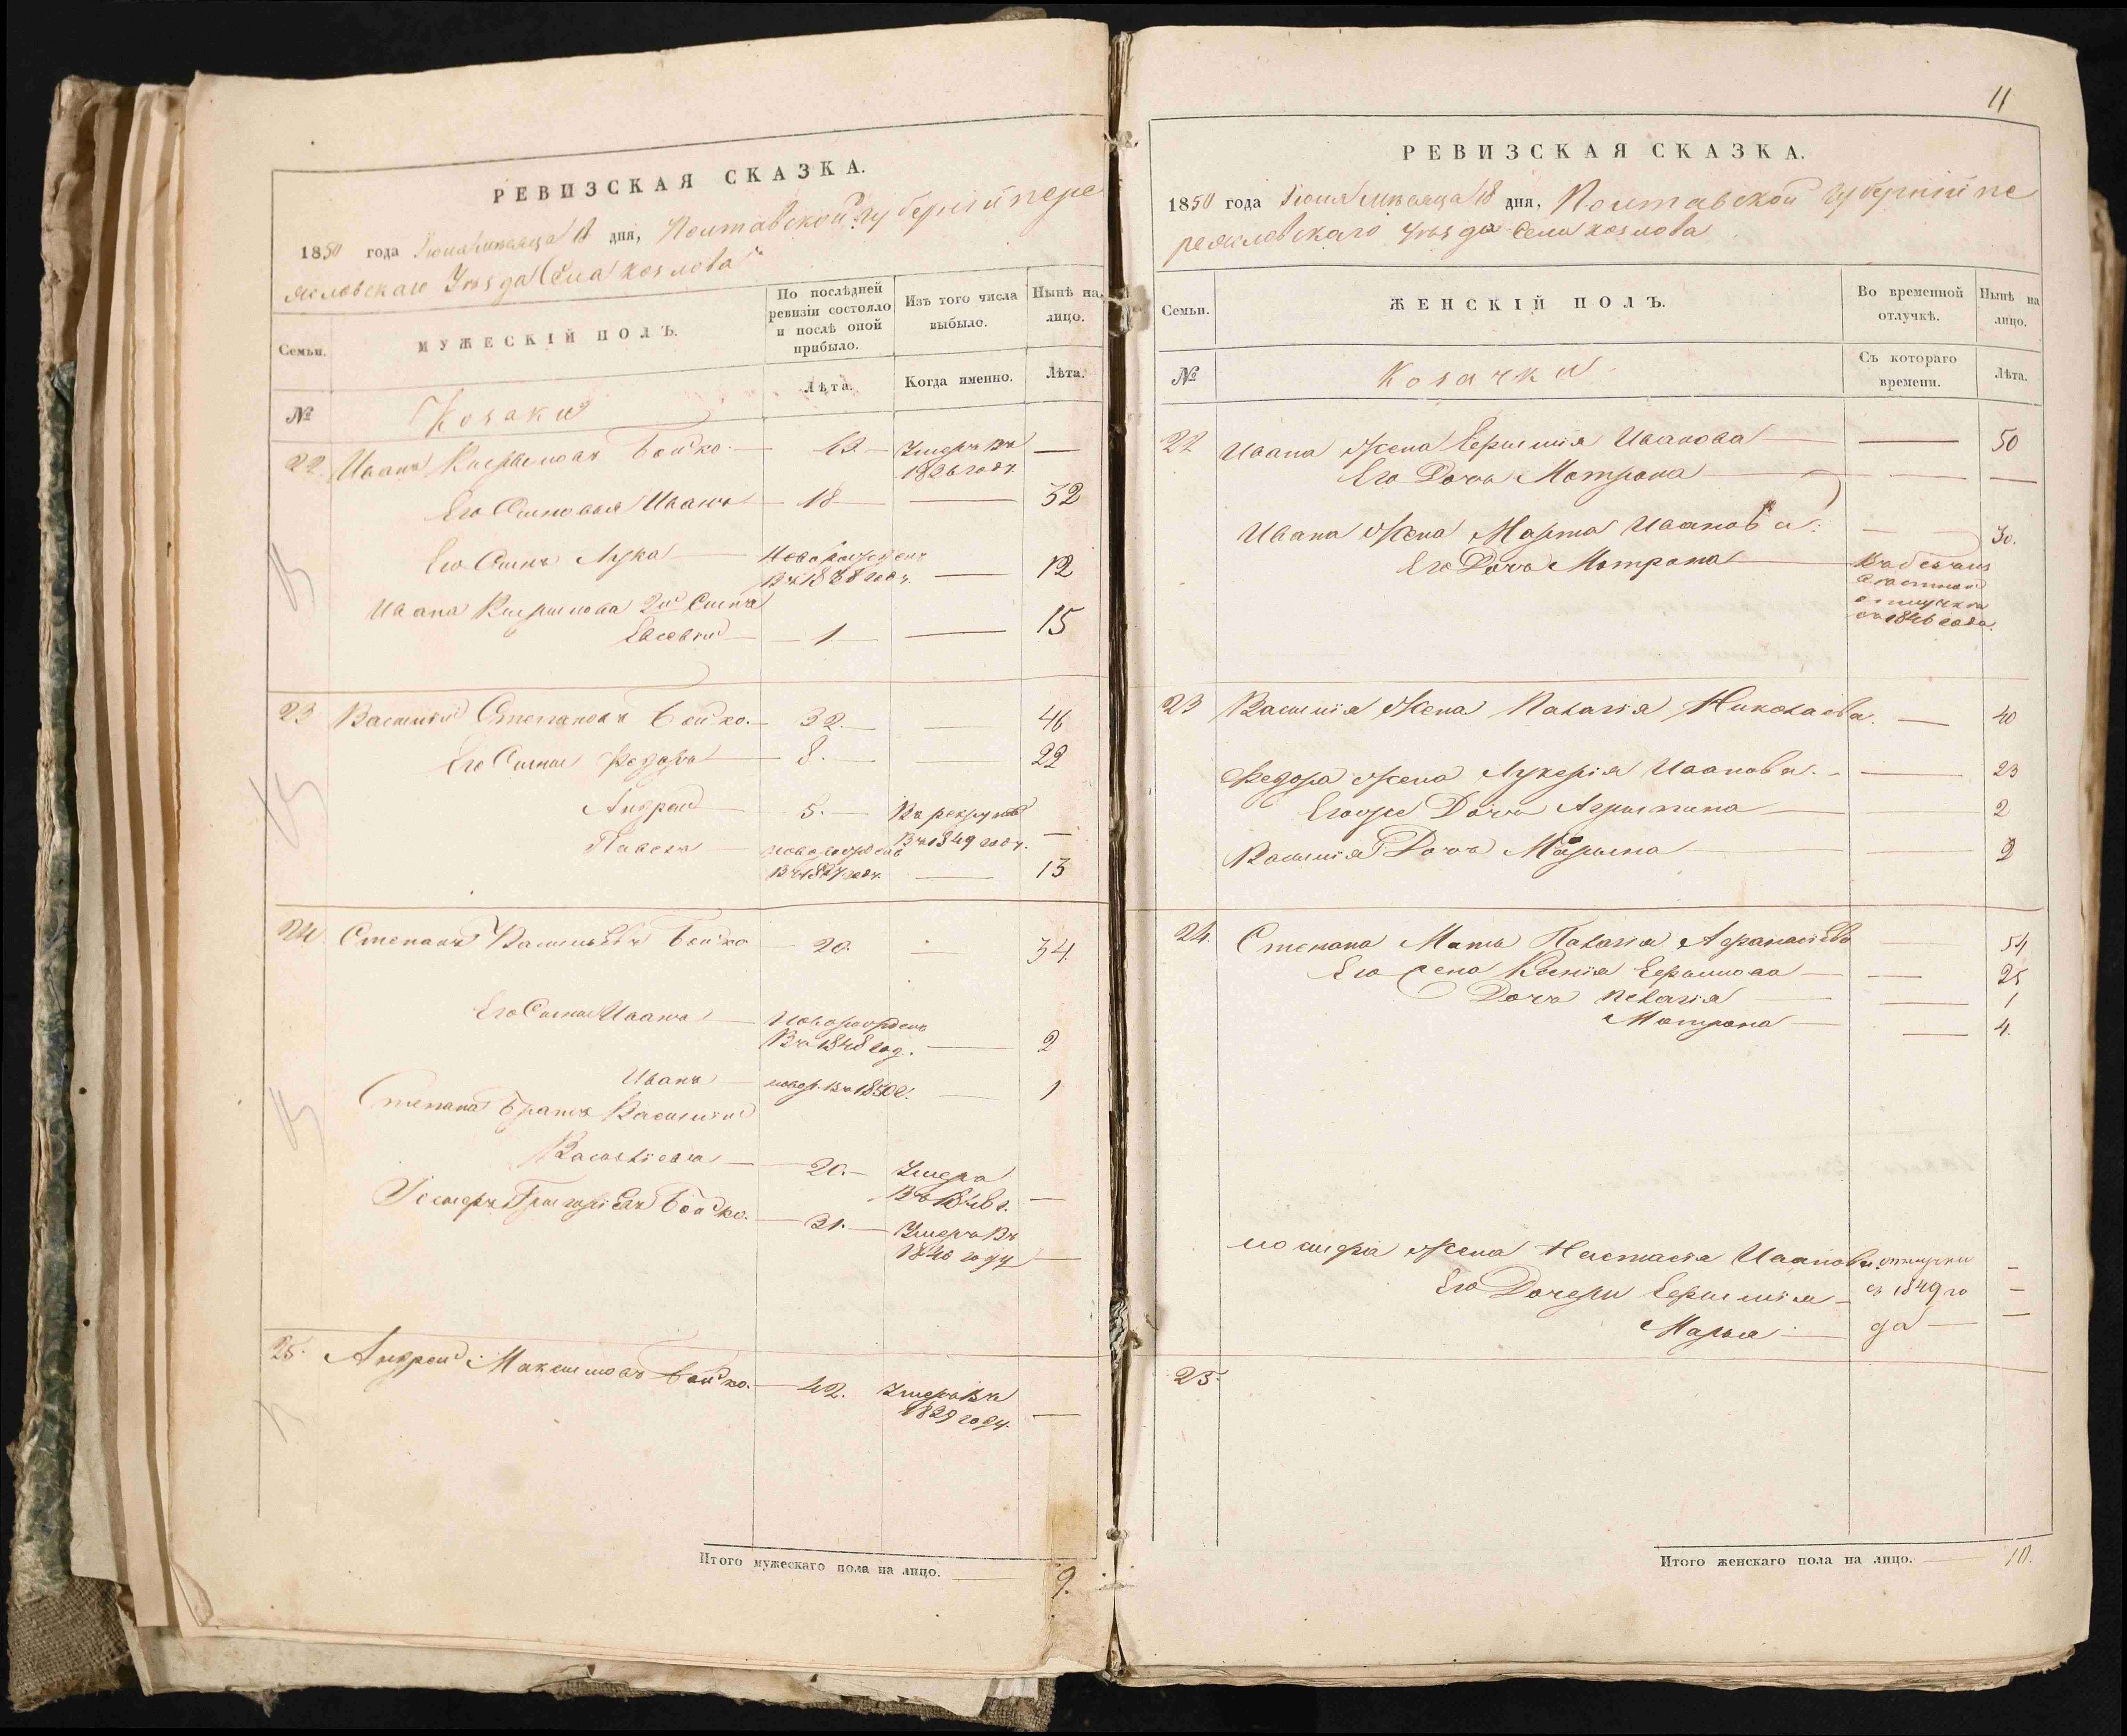 РЕВИЗСКАЯ СКАЗКА.
1850 года Іюня мѣсяца 18 дня, Полтавской губерніи пере
яславскаго Уѣзда Села козлова
Семьи.
МУЖЕСКІЙ ПОЛЪ.
По послѣдней ревизіи состояло и послѣ оной прибыло.
Изъ того числа выбыло.
Нынѣ на лицо.
№
Козаки
Лѣта.
Когда именно.
Лѣта.
22. Иванъ Бойко. Умеръ въ —
1836 годѣ.
Его Иванъ — 18 — 32
Его Сынъ Лука — Новорожденъ
въ 1838 годѣ. — 12
Ивана 2й Сынъ
Евсевій — 1 — 15
23 Василій Степановъ Бойко. — 32. — 46
Его Сыны Федоръ — 8. — 22
Андрей — 5. — Въ рекруты
въ 1849 годѣ. —
Павелъ — новорожденъ
годѣ. — 13
24. Степанъ Васильевъ Бойко 20. — 34.
Его Сыны Иванъ — Новорожденъ
въ 1848 год. — 2
Иванъ — новор. въ 1850 г. — 1
Степана Братъ Василій
Васильевъ — 20. — Умеръ
въ —
Іосифъ Григоріевъ Бойко. — 21. — Умеръ въ
1840 году —
25. Андрей Максимовъ Бойко. — 42. Умеръ въ
1839 году. —
Итого мужескаго пола на лицо. — 9.
11
РЕВИЗСКАЯ СКАЗКА.
1850 года Іюня мѣсяца 18 дня, Полтавской губерніи пе
реяславскаго уѣзда Села козлова
Семьи.
ЖЕНСКІЙ ПОЛЪ.
Во временной отлучкѣ.
Нынѣ на лицо.
№
Козачки
Съ котораго времени.
Лѣта.
22 Ивана Жена Ефимія Иванова — 50
Его Дочь Мотрона — —
Ивана Жена Марта Иванова. — 30.
Его Дочь Мотрона —
отлучкѣ
съ 1846 года.
23 Василія Жена Палагія Николаева. — 40
Федора Жена Лукерія Иванова. — 23
Егоже Дочь Агрипина — 2
Василія Дочь Марина — 9
24. Степана Мать Палагія Афанасіева 54
Его жена Ксенія Ефимова — 25
Дочь Пелагія — 1
Мотрона — 4.
Іосифа Жена Настасія Иванова отлучки —
Его Дочери Ефимія — съ 1849 го —
Марья — да — —
25.
Итого женскаго пола на лицо. — 10.